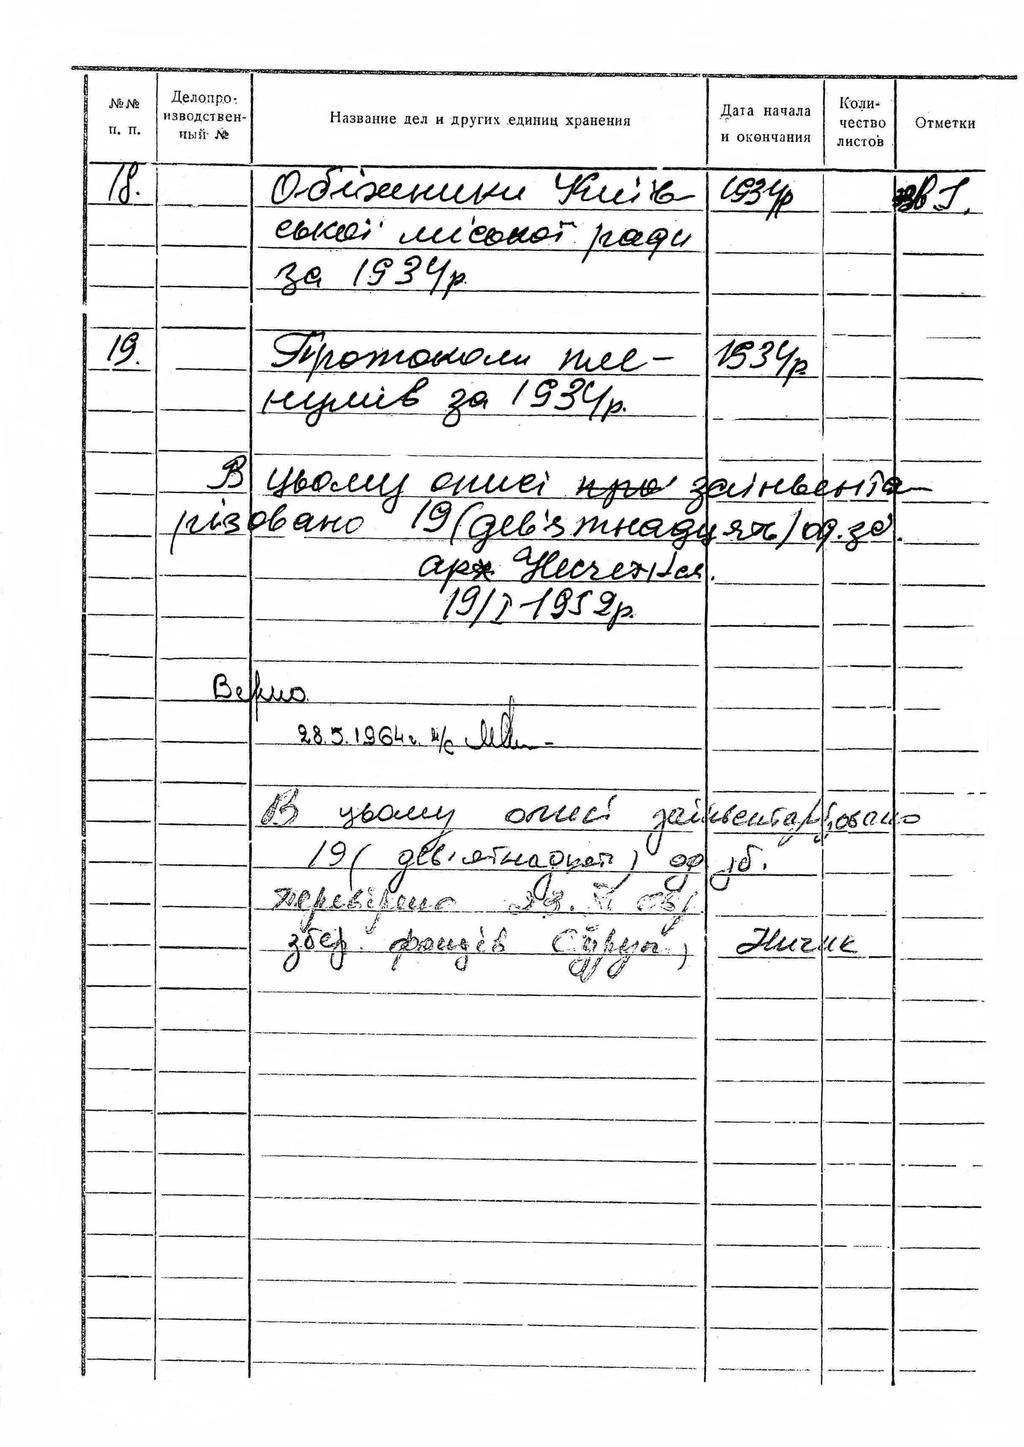 №№ п. п.
Делопроизводственный №
Название дел и других единиц хранения
Дата начала и окончания
Количество листов
Отметки
18. Обіжники Київ- 1934р
ської міської ради
за 1934р.
19. Протоколи пле- 1934р.
нумів за 1934р.
В цьому описі про заінвента-
різовано 19 (дев'ятнадцять) од. зб.
арх.
19/I-1952р.
Верно
28.5.1964г.
В цьому описі заінвентаризовано
19 (дев'ятнадцять) од. зб.
перевірено
збер. фондів